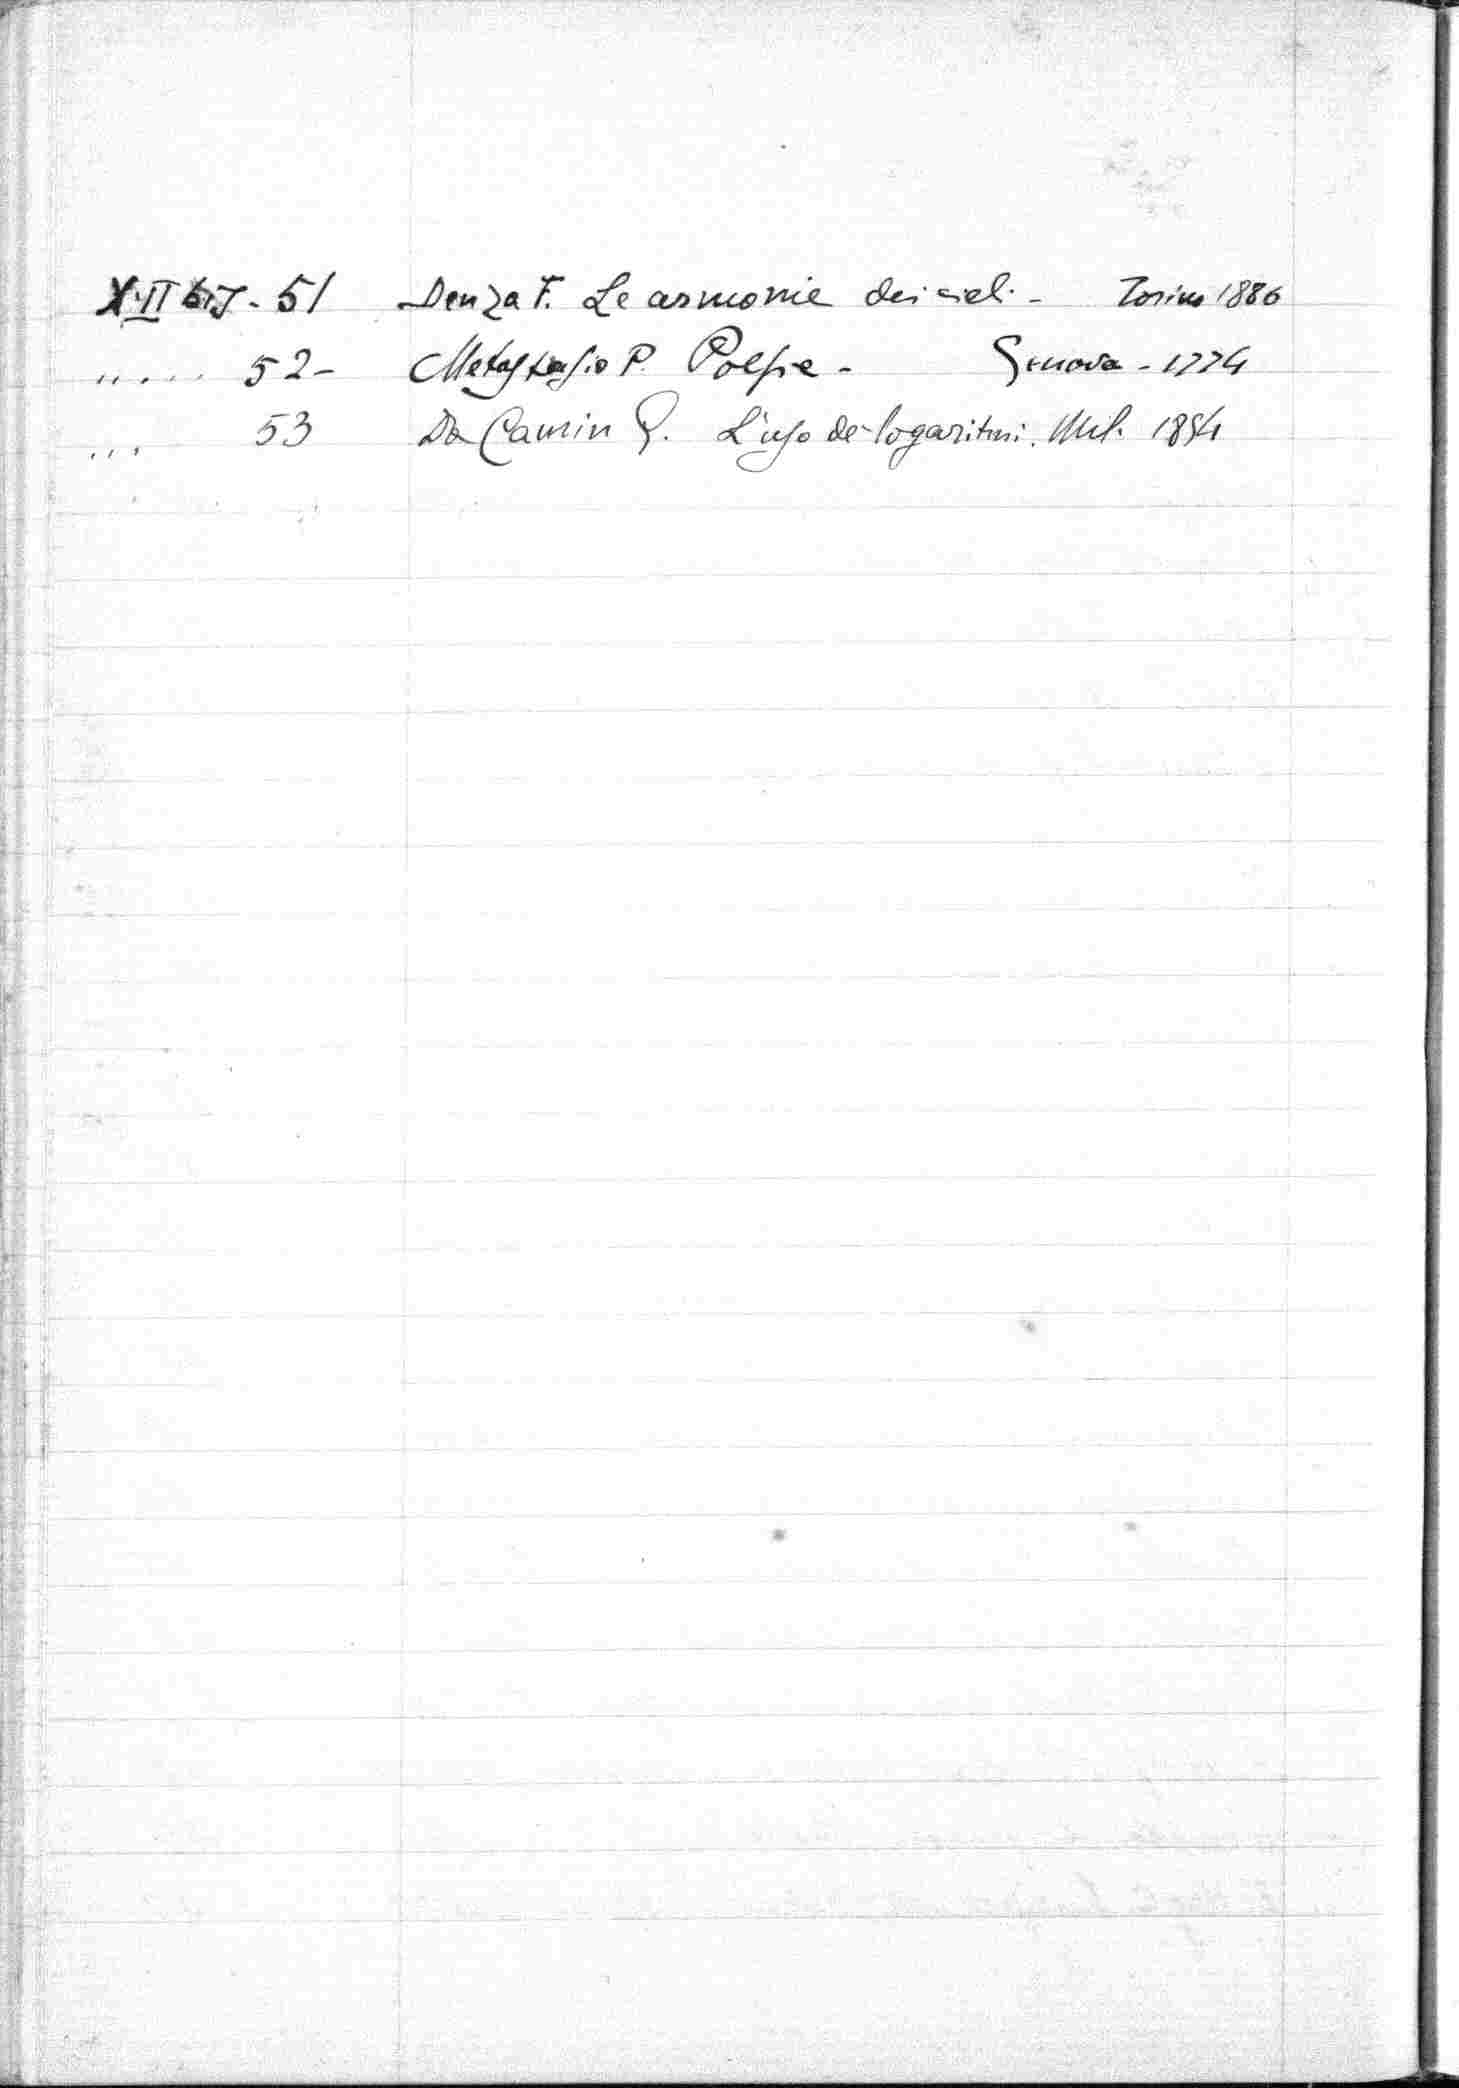 X·II bis - 51 Denza F. Le armonie dei cieli - Torino 1886
" . . . . 52 - Metastasio P. Poesie - Genova - 1774
. . . 53 Da Camin G. L'uso de' logaritmi. Mil. 1854